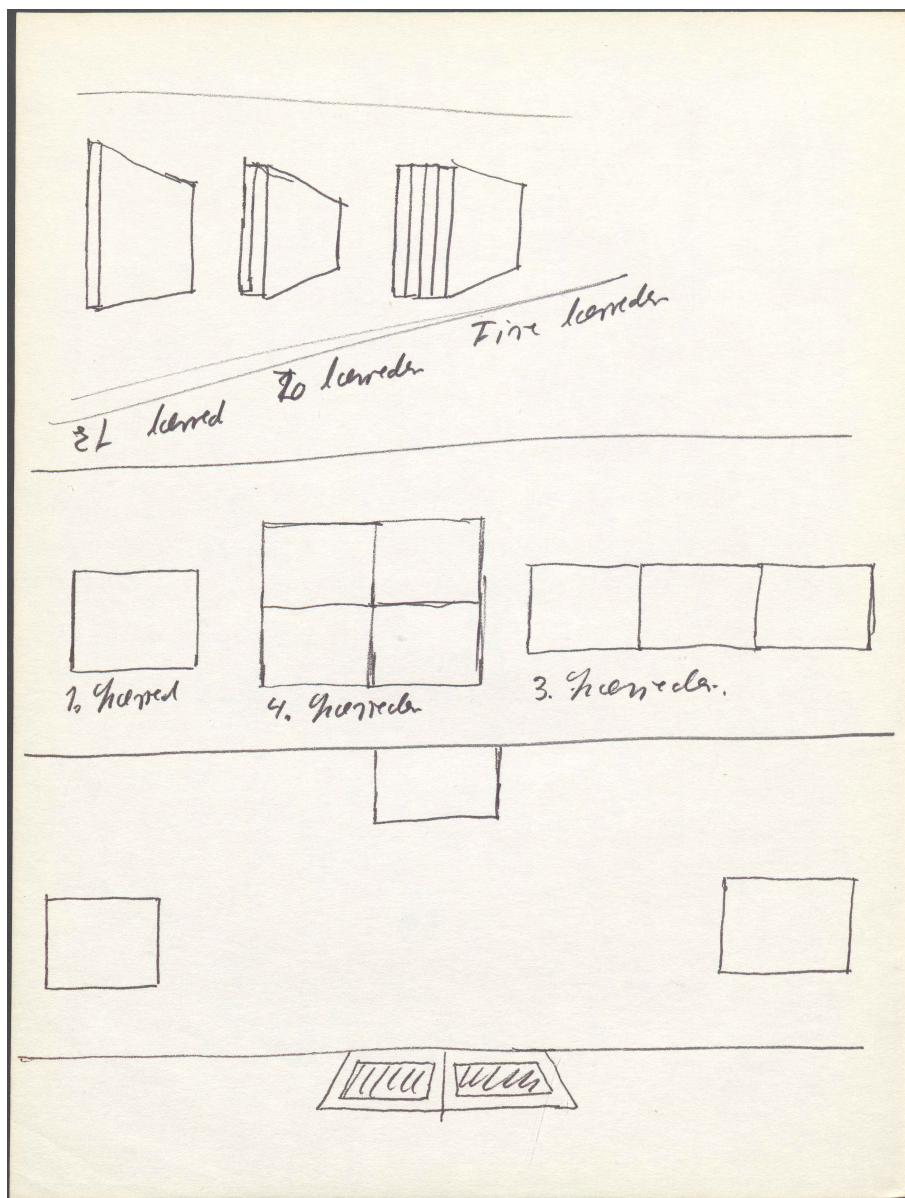 Et lærred
To lærreder
Fire lærreder
1. lærred
4. lærreder
3. lærreder.